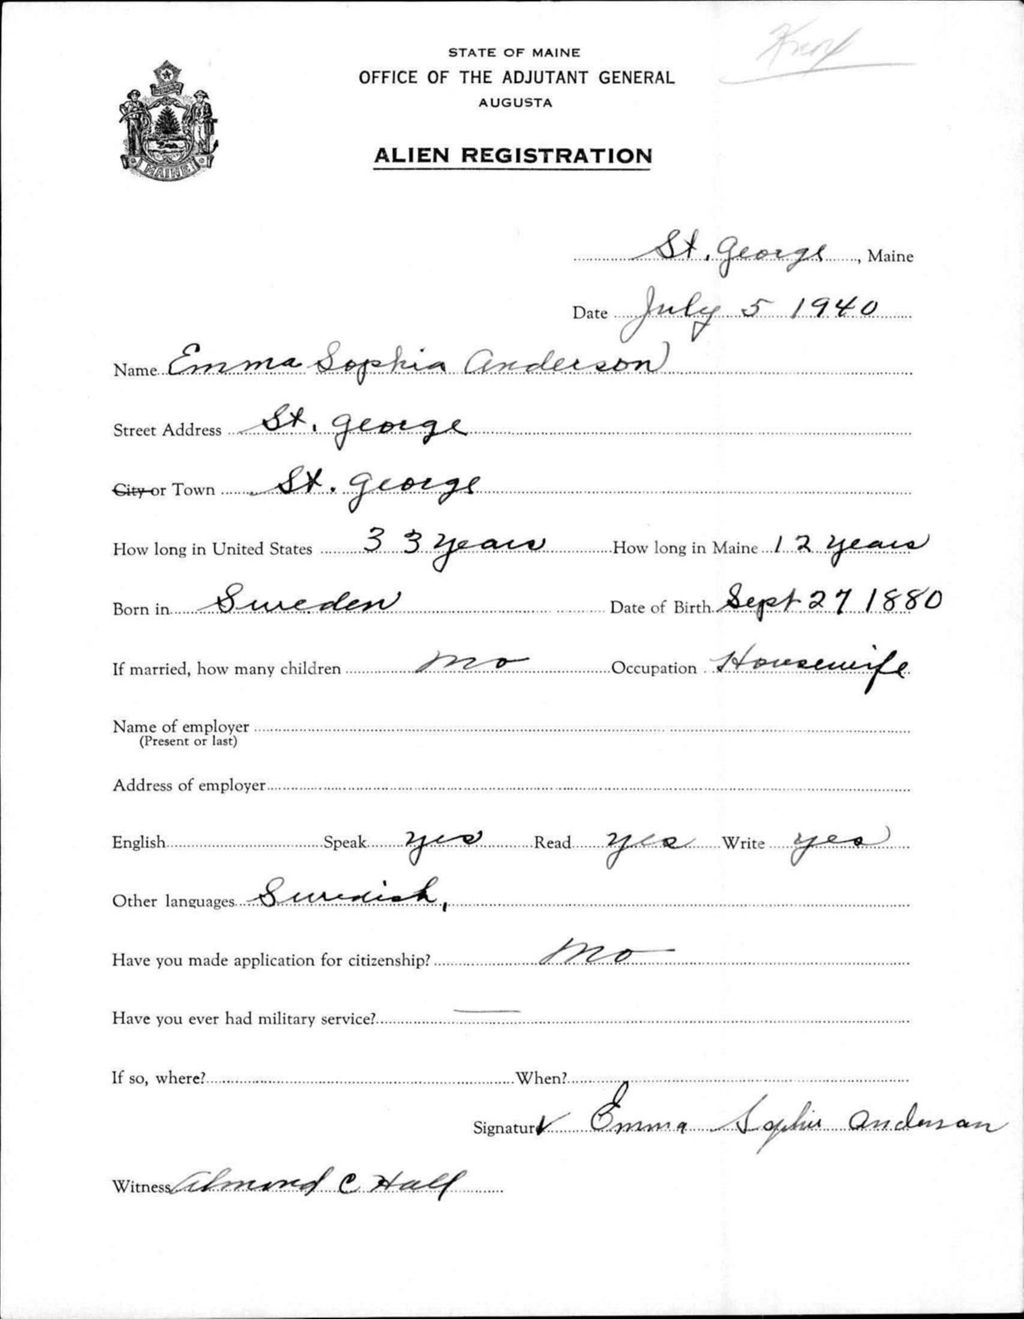 Knox
STATE OF MAINE
OFFICE OF THE ADJUTANT GENERAL
AUGUSTA
ALIEN REGISTRATION
MAINE
St. George, Maine
Date July 5 1940
Name Emma Sophia Anderson
Street Address St. George
City or Town St. George
How long in United States 33 Years How long in Maine 12 years
Born in Sweden Date of Birth Sept 27 1880
If married, how many children No Occupation Housewife
Name of employer
(Present or last)
Address of employer
English Speak yes Read yes Write yes
Other languages Swedish,
Have you made application for citizenship? No
Have you ever had military service? —
If so, where? When?
Signature Emma Sophia Anderson
Witness Almond C Hall